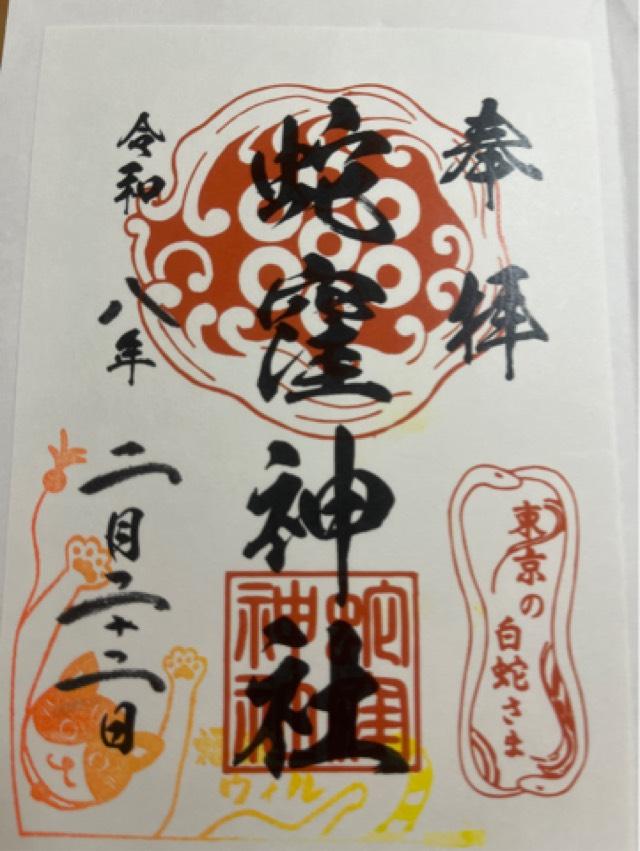 奉拝
蛇窪神社
令和八年二月二十二日
蛇窪神社
東京の
白蛇さま
福
ウィル